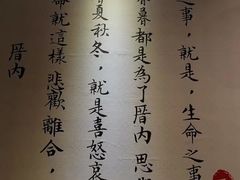 之事，就是，生命之事
春暮都是為了厝內思
夏秋冬，就是喜怒哀
都就這樣悲歡離合，
厝內